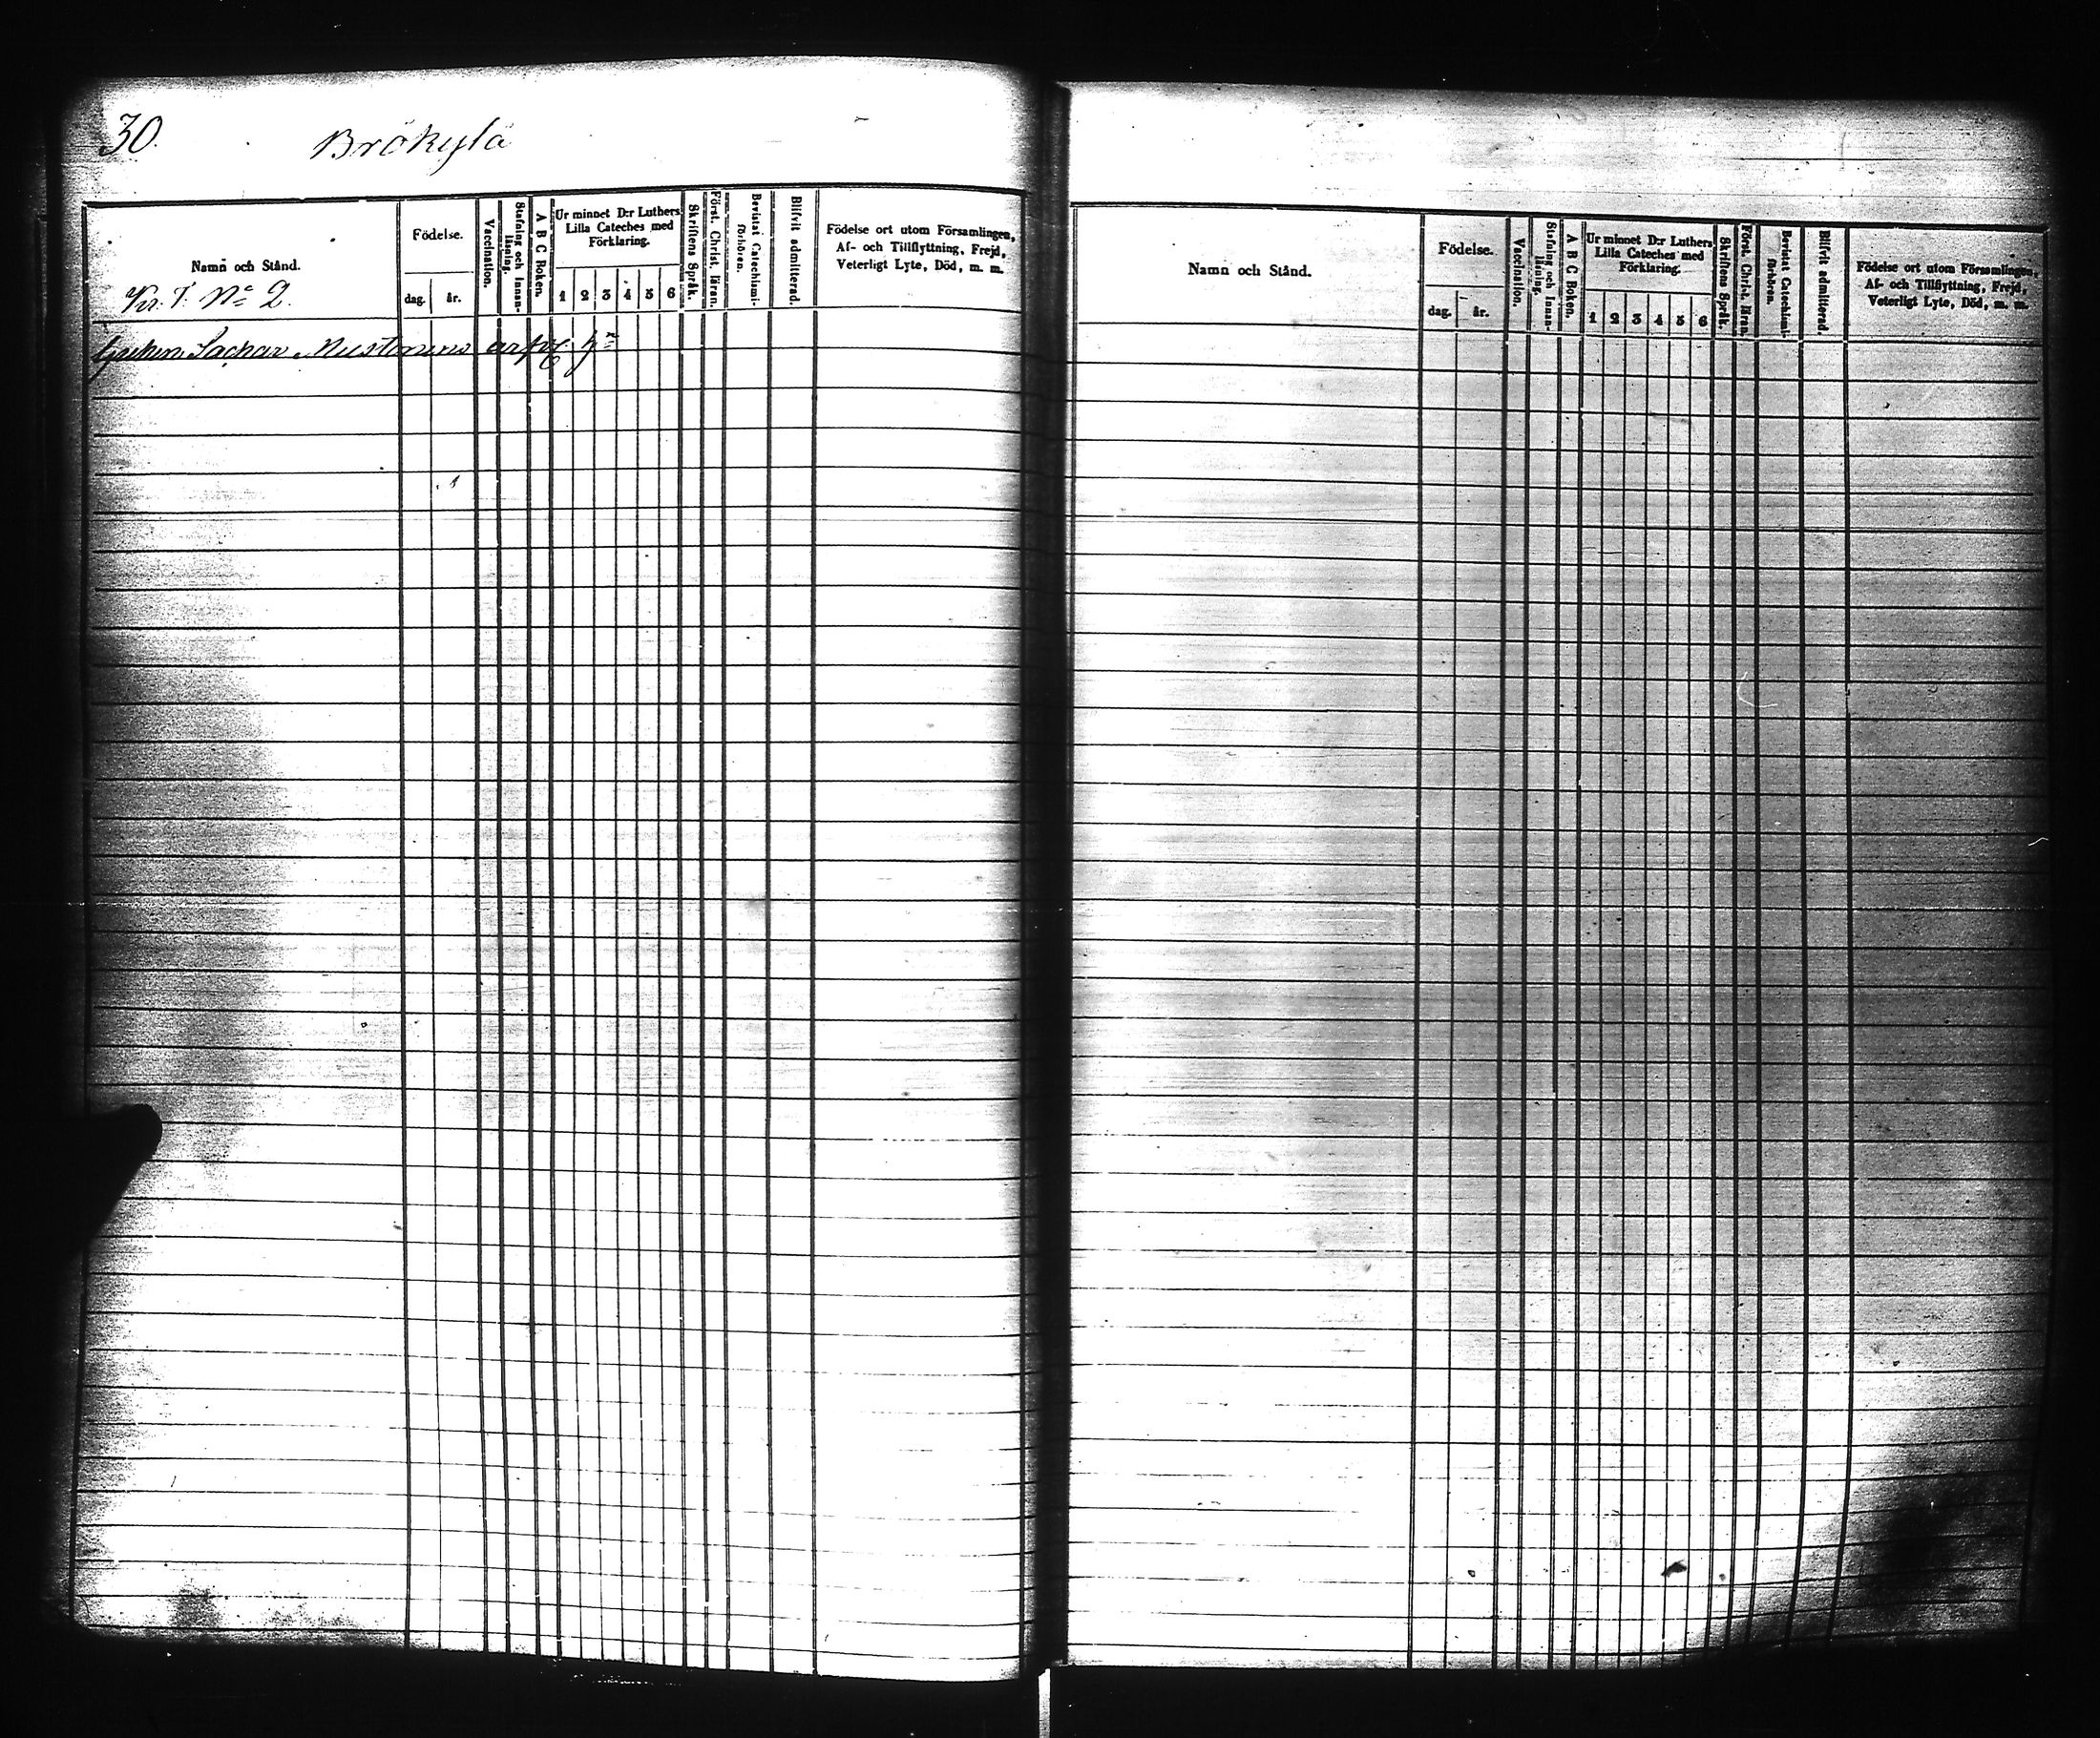 30.
Brökylä
Namn och Stånd.
Kr. T. No 2.
Födelse.
dag.
år.
Vaccination.
Stafning och Innanläsning.
A B C Boken.
Ur minnet D:r Luthers Lilla Cateches med Förklaring.
1 2 3 4 5 6
Skriftens Språk.
Först. Christ. läran.
Bevistat Catechismiförhören.
Blifvit admitterad.
Födelse ort utom Församlingen,
Af- och Tillflyttning, Frejd,
Veterligt Lyte, Död, m. m.
Sachar Mustonens
Namn och Stånd.
Födelse.
dag.
år.
Vaccination.
Stafning och Innanläsning.
A B C Boken.
Ur minnet D:r Luthers Lilla Cateches med Förklaring.
1 2 3 4 5 6
Skriftens Språk.
Först. Christ. läran.
Bevistat Catechismiförhören.
Blifvit admitterad.
Födelse ort utom Församlingen,
Af- och Tillflyttning, Frejd,
Veterligt Lyte, Död, m. m.